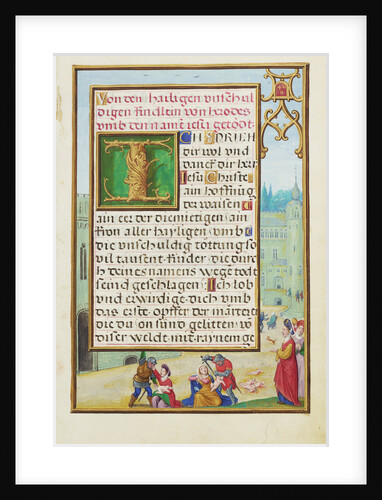 Von den hailigen vnschul
digen kindlein von herodes
vmb den namē iesu getödt.
ICH SPRICH
dir lob vnd
danck dir her
Jesu Christe
ain hoffnūg
der waisen
ain eer der diemietigen ain
kron aller hayligen vmb
die vnschuldig töttung so
vil tausent kinder die durch
h deines namens wege todt
seind geschlagen Ich lob
vnd erwirdige dich vmb
das erste opffer der märterer
die du on sünd gelitten vō
diser weldt mit raynem ge